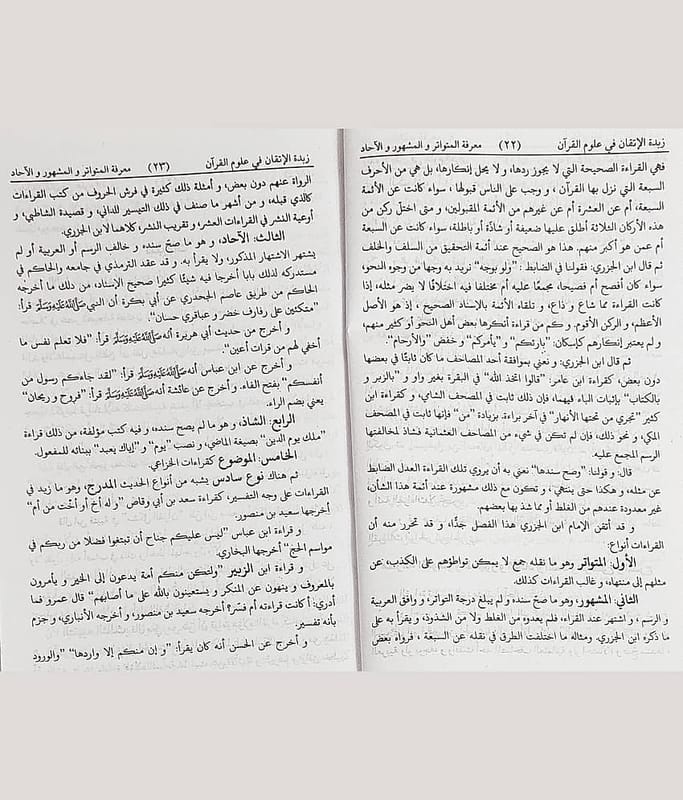 زبدة الإتقان في علوم القرآن (٢٢) معرفة المتواتر و المشهور و الآحاد
فهي القراءة الصحيحة التي لا يجوز ردها، و لا يحل إنكارها، بل هي من الأحرف
السبعة التي نزل بها القرآن ، و وجب على الناس قبولها ، سواء كانت عن الأئمة
السبعة، أم عن العشرة أم عن غيرهم من الأئمة المقبولين، و متى اختل ركن من
هذه الأركان الثلاثة أطلق عليها ضعيفة أو شاذّة أو باطلة، سواء كانت عن السبعة
أم عمن هو أكبر منهم. هذا هو الصحيح عند أئمة التحقيق من السلف والخلف
ثم قال ابن الجزري: فقولنا في الضابط : "ولو بوجه" نريد به وجها من وجوه النحو،
سواء كان أفصح أم فصيحا، مجمعًا عليه أم مختلفا فيه اختلافًا لا يضر مثله، إذا
كانت القراءة مما شاع و ذاع، و تلقاه الأئمة بالإسناد الصحيح ، إذ هو الأصل
الأعظم، و الركن الأقوم. و كم من قراءة أنكرها بعض أهل النحو أو كثير منهم،
و لم يعتبر إنكارهم كإسكان: "بارئكم" و "يأمركم" و خفض "والأرحام".
ثم قال ابن الجزري: و نعني بموافقة أحد المصاحف ما كان ثابتًا في بعضها
دون بعض، كقراءة ابن عامر: "قالوا اتخذ الله" في البقرة بغير واو و "بالزبر و
بالكتاب" بإثبات الباء فيهما، فإن ذلك ثابت في المصحف الشامي، و كقراءة ابن
كثير "تجري من تحتها الأنهار" في آخر براءة. بزيادة "من" فإنها ثابتة في المصحف
المكي، و نحو ذلك، فإن لم تكن في شيء من المصاحف العثمانية فشاذ لمخالفتها
الرسم المجمع عليه.
قال: و قولنا: "وصح سندها" نعني به أن يروي تلك القراءة العدل الضابط
عن مثله، و هكذا حتى ينتهي، و تكون مع ذلك مشهورة عند أئمة هذا الشأن،
غير معدودة عندهم من الغلط أو مما شذ بها بعضهم.
و قد أتقن الإمام ابن الجزري هذا الفصل جدًّا، و قد تحرر منه أن
القراءات أنواع:
الأول: المتواتر وهو ما نقله جمع لا يمكن تواطؤهم على الكذب، عن
مثلهم إلى منتهاه، و غالب القراءات كذلك.
الثاني: المشهور، وهو ما صحّ سنده و لم يبلغ درجة التواتر، و وافق العربية
و الرسم ، و اشتهر عند القراء، فلم يعدوه من الغلط ولا من الشذوذ، و يقرأ به على
ما ذكره ابن الجزري. ومثاله ما اختلفت الطرق في نقله عن السبعة ، فرواه بعض
زبدة الإتقان في علوم القرآن (٢٣) معرفة المتواتر و المشهور و الآحاد
الرواة عنهم دون بعض، و أمثلة ذلك كثيرة في فرش الحروف من كتب القراءات
كالذي قبله، و من أشهر ما صنف في ذلك التيسير للداني، و قصيدة الشاطبي، و
أوعية النشر في القراءات العشر، و تقريب النشر، كلاهما لابن الجزري.
الثالث: الآحاد، و هو ما صحّ سنده و خالف الرسم أو العربية أو لم
يشتهر الاشتهار المذكور، ولا يقرأ به. و قد عقد الترمذي في جامعه والحاكم في
مستدركه لذلك بابا أخرجا فيه شيئًا كثيرا صحيح الإسناد، من ذلك ما أخرجه
الحاكم من طريق عاصم الجحدري عن أبي بكرة أن النبي صَلَّى اللهُ عَلَيْهِ وَسَلَّمَ قرأ:
"متكئين على رفارف خضر و عباقري حسان".
و أخرج من حديث أبي هريرة أنه صَلَّى اللهُ عَلَيْهِ وَسَلَّمَ قرأ: "فلا تعلم نفس ما
أخفي لهم من قرات أعين".
و أخرج عن ابن عباس أنه صَلَّى اللهُ عَلَيْهِ وَسَلَّمَ قرأ: "لقد جاءكم رسول من
أنفسكم" بفتح الفاء. و أخرج عن عائشة أنه صَلَّى اللهُ عَلَيْهِ وَسَلَّمَ قرأ: "فروح و ريحان"
يعني بضم الراء.
الرابع: الشاذ، و هو ما لم يصح سنده، و فيه كتب مؤلفة، من ذلك قراءة
"ملك يوم الدين" بصيغة الماضي، و نصب "يوم" و "إياك يعبد" ببنائه للمفعول.
الخامس: الموضوع كقراءات الخزاعي.
ثم هناك نوع سادس يشبه من أنواع الحديث المدرج، وهو ما زيد في
القراءات على وجه التفسير، كقراءة سعد بن أبي وقاص "و له أخ أو أخت من أم"
أخرجها سعيد بن منصور.
و قراءة ابن عباس "ليس عليكم جناح أن تبتغوا فضلا من ربكم في
مواسم الحج" أخرجها البخاري.
و قراءة ابن الزبير "ولتكن منكم أمة يدعون إلى الخير و يأمرون
بالمعروف و ينهون عن المنكر و يستعينون بالله على ما أصابهم" قال عمرو فما
أدري: أ كانت قراءته أم فسّر؟ أخرجه سعيد بن منصور، و أخرجه الأنباري، و جزم
بأنه تفسير.
و أخرج عن الحسن أنه كان يقرأ: "و إن منكم إلا واردها" "والورود